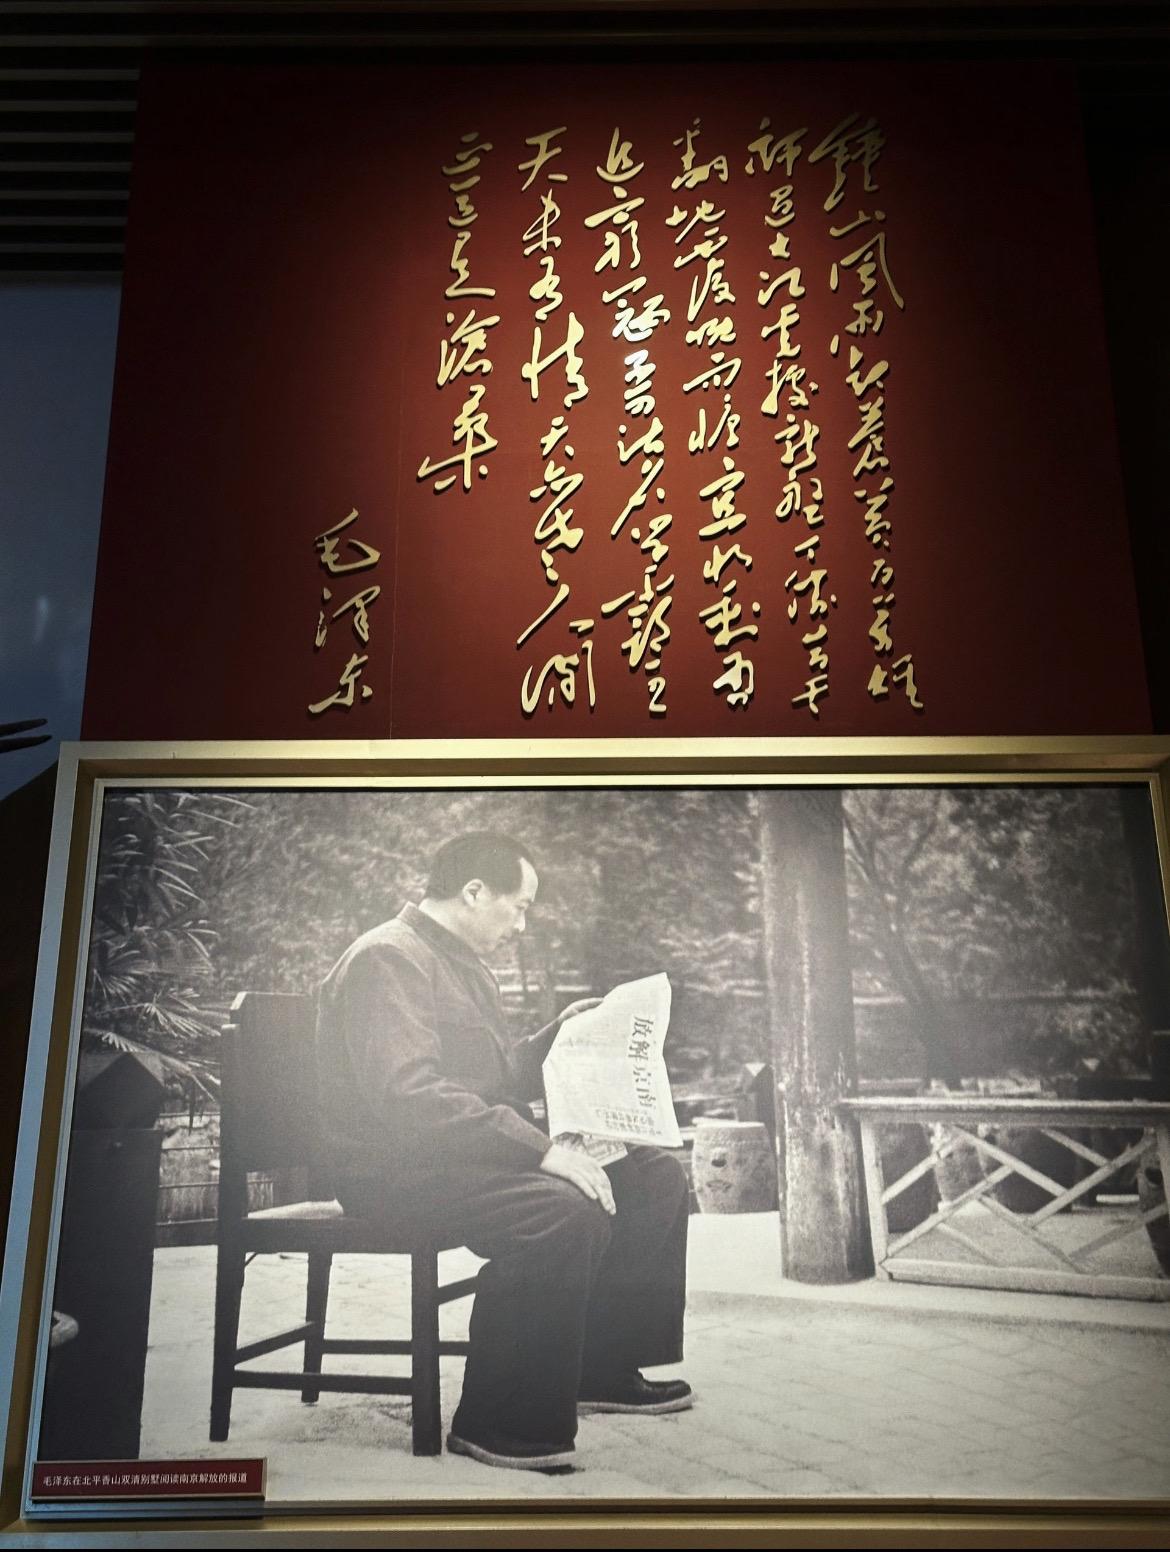 鍾山風雨起蒼黄百万雄
師过大江虎踞龍盤今勝昔天
翻地覆慨而慷宜将剩勇
追窮寇不可沽名学霸王
天若有情天亦老人间
正道是滄桑
毛泽东
南京解放
毛泽东在北平香山双清别墅阅读南京解放的报道